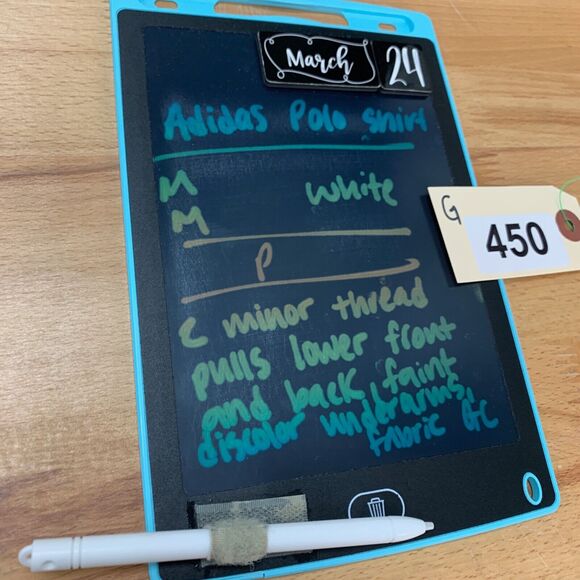 March 24
Adidas Polo shirt
M White
M
P
G
450
C minor thread
pulls lower front
and back faint
discolor underarms,
fabric GC